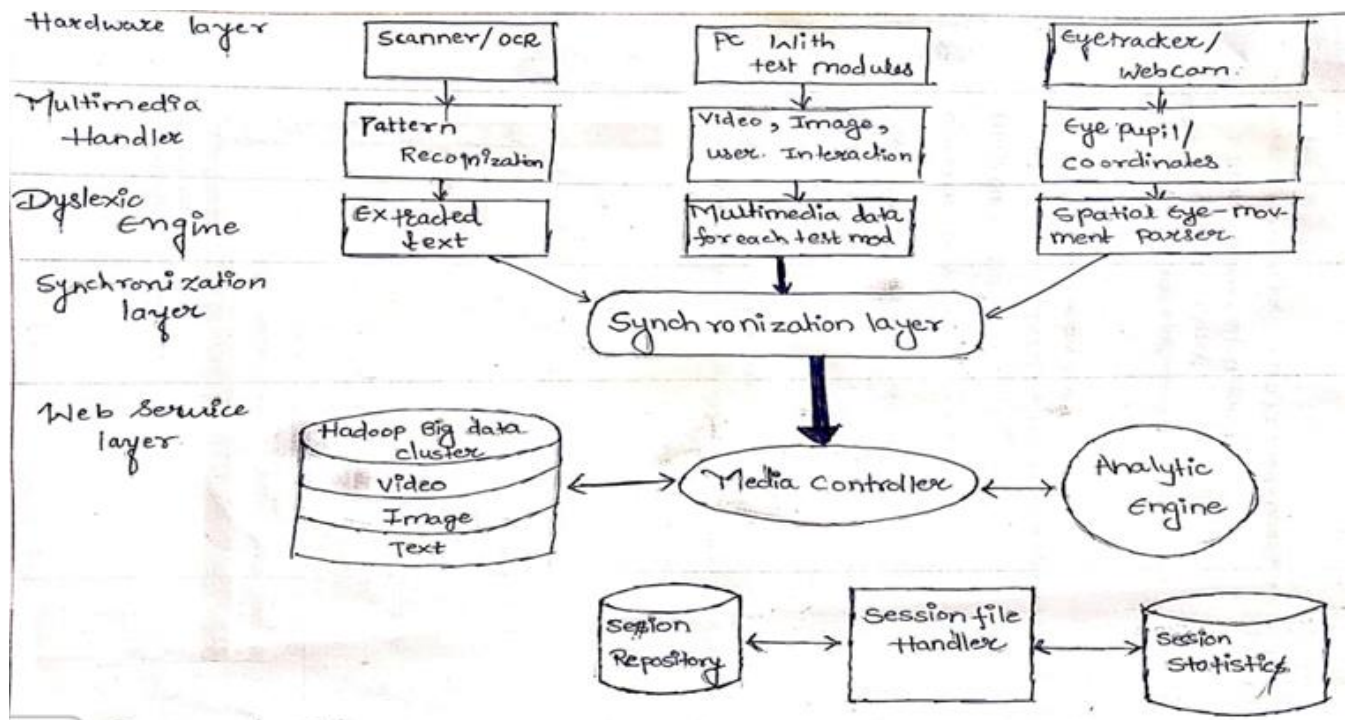 Hardware layer
Scanner/OCR
PC With
test modules
Eyetracker/
Webcam.
Multimedia
Handler
Pattern
Recognization
Video, Image,
user. Interaction
Eye pupil/
coordinates.
Dyslexic
Engine
Extracted
text
Multimedia data
for each test mod
Spatial Eye-mov-
ment Parser.
Synchronization
layer
Synchronization layer
Web Service
layer.
Hadoop Big data
cluster
Video
Image
Text
Media Controller
Analytic
Engine
Session
Repository
Session file
Handler
Session
Statistics